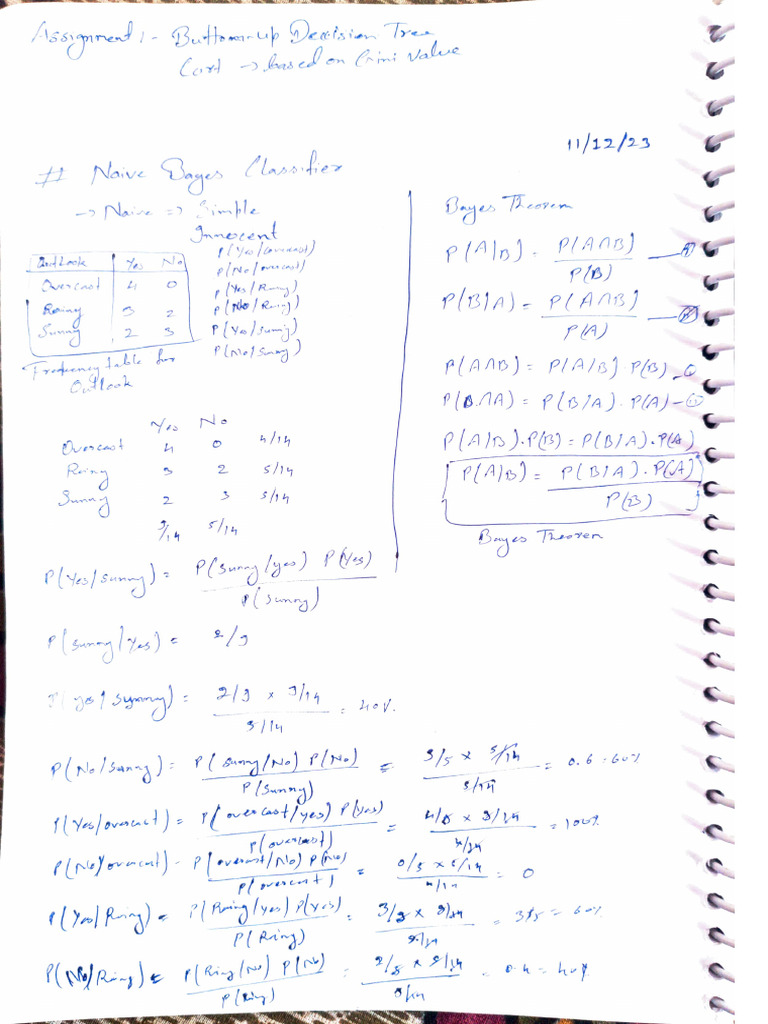 Assignment :- Buttom-up Decision Tree
Cart → based on Gini Value
11/12/23
# Naive Bayes Classifier
→ Naive => Simple
Innocent
Outlook Yes No
Overcast 4 0
Rainy 3 2
Sunny 2 3
Frequency table for
Outlook
P(Yes/Overcast)
P(No/overcast)
P(Yes/Rainy)
P(No/Rainy)
P(Yes/Sunny)
P(No/Sunny)
Yes No
Overcast 4 0 4/14
Rainy 3 2 5/14
Sunny 2 3 5/14
9/14 5/14
P(Yes/Sunny) = P(Sunny/yes) P(Yes)
P(Sunny)
P(Sunny/Yes) = 2/9
P(yes/Sunny) = 2/9 x 9/14 = 40%
5/14
Bayes Theorem
P(A|B) = P(A∩B)
P(B)
P(B/A) = P(A∩B)
P(A)
P(A∩B) = P(A/B) · P(B)
P(B∩A) = P(B/A) · P(A)
P(A/B) · P(B) = P(B/A) · P(A)
P(A/B) = P(B/A) · P(A)
P(B)
Bayes Theorem
P(No/Sunny) = P(Sunny/No) P(No) = 3/5 x 5/14 = 0.6 = 60%
P(Sunny) 5/14
P(Yes/overcast) = P(overcast/yes) P(yes) = x 9/14 = 100%
P(overcast) 4/14
P(No/overcast) = P(overcast/No) P(No) = 0/5 x 5/14 = 0
P(overcast) 4/14
P(Yes/Rainy) = P(Rainy/yes) P(Yes) = 3/9 x 9/14 = 3/5 = 60%
P(Rainy) 5/14
P(No/Rainy) = P(Rainy/No) P(No) = 2/5 x 5/14 = 0.4 = 40%
P(Rainy) 5/14